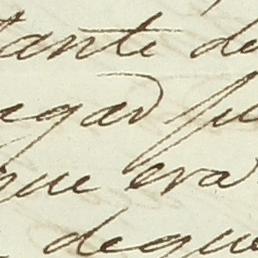 tante de
agad fu
que era
deque